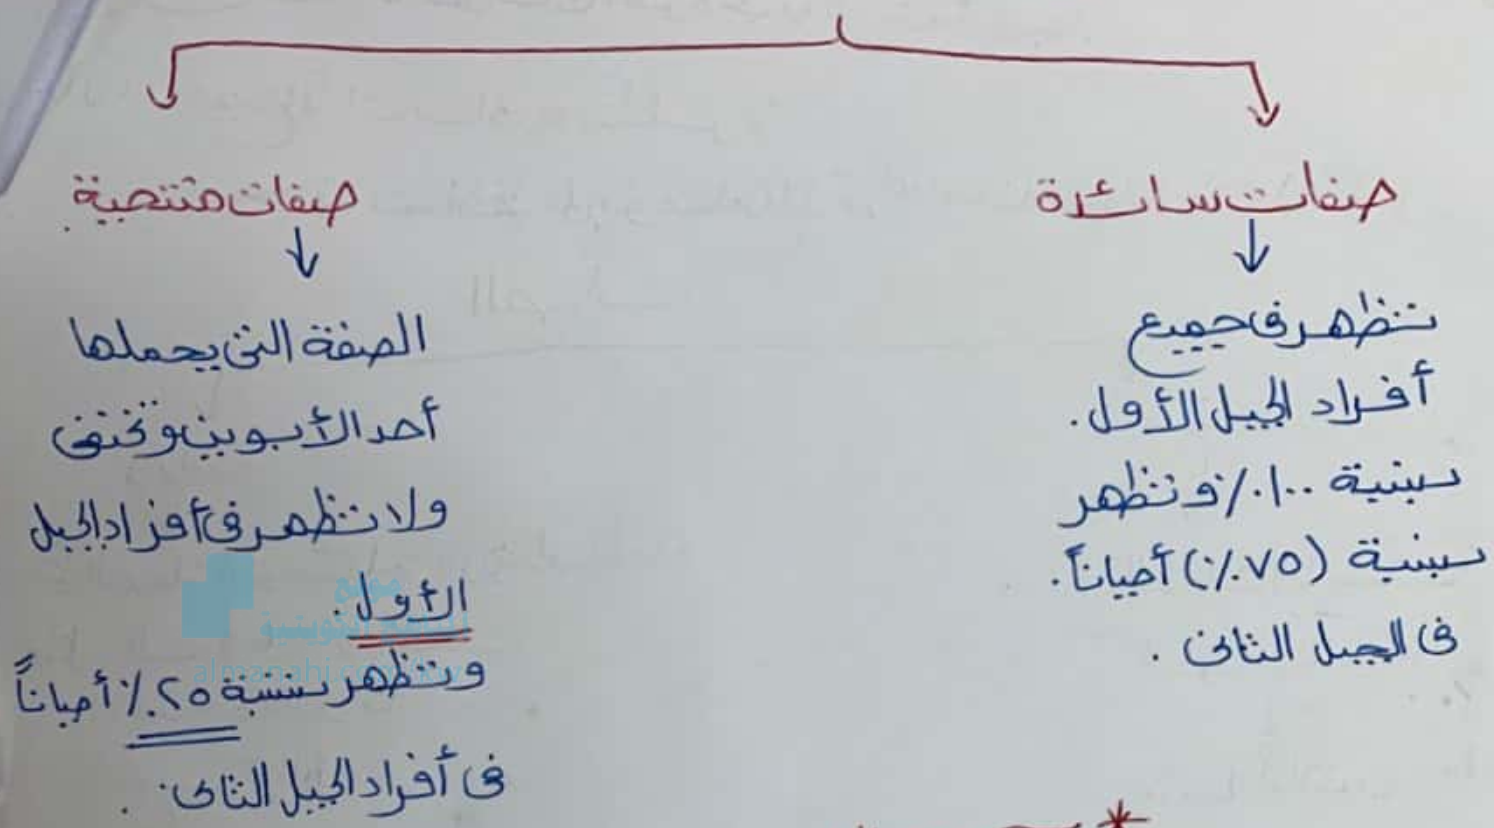 صفات سائدة
تظهر في جميع
أفراد الجيل الأول.
بنسبة ١٠٠٪ وتظهر
بنسبة (٧٥٪) أحياناً.
في الجيل الثاني.
صفات متنحية
الصفة التي يحملها
أحد الأبوين وتختفي
ولا تظهر في أفراد الجيل
الأول.
وتظهر بنسبة ٢٥٪ أحياناً
في أفراد الجيل الثاني.
موقع
المناهج الكويتية
almanahj.com/kw